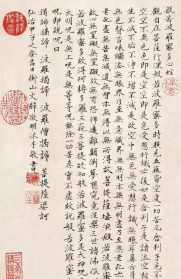 般若波羅蜜多心經
觀自在菩薩行深般若波羅蜜多時照見五蘊皆空度一切苦厄舍利子色不異
空空不異色色即是空空即是色受想行識亦復如是舍利子是諸法空相不
生不滅不垢不淨不增不減是故空中無色無受想行識無眼耳鼻舌身意
無色聲香味觸法無眼界乃至無意識界無無明亦無無明盡乃至無老死亦無
老死盡無苦集滅道無智亦無得以無所得故菩提薩埵依般若
波羅蜜多故心無罣礙無罣礙故無有恐怖遠離顛倒夢想究竟涅槃三世諸佛依
般若波羅蜜多故得阿耨多羅三藐三菩提故知般若波羅蜜多是大神咒是
大明咒是無上咒是無等等咒能除一切苦真實不虛故說般若波羅蜜多咒即說咒曰
揭諦揭諦 波羅揭諦 波羅僧揭諦 菩提薩婆訶